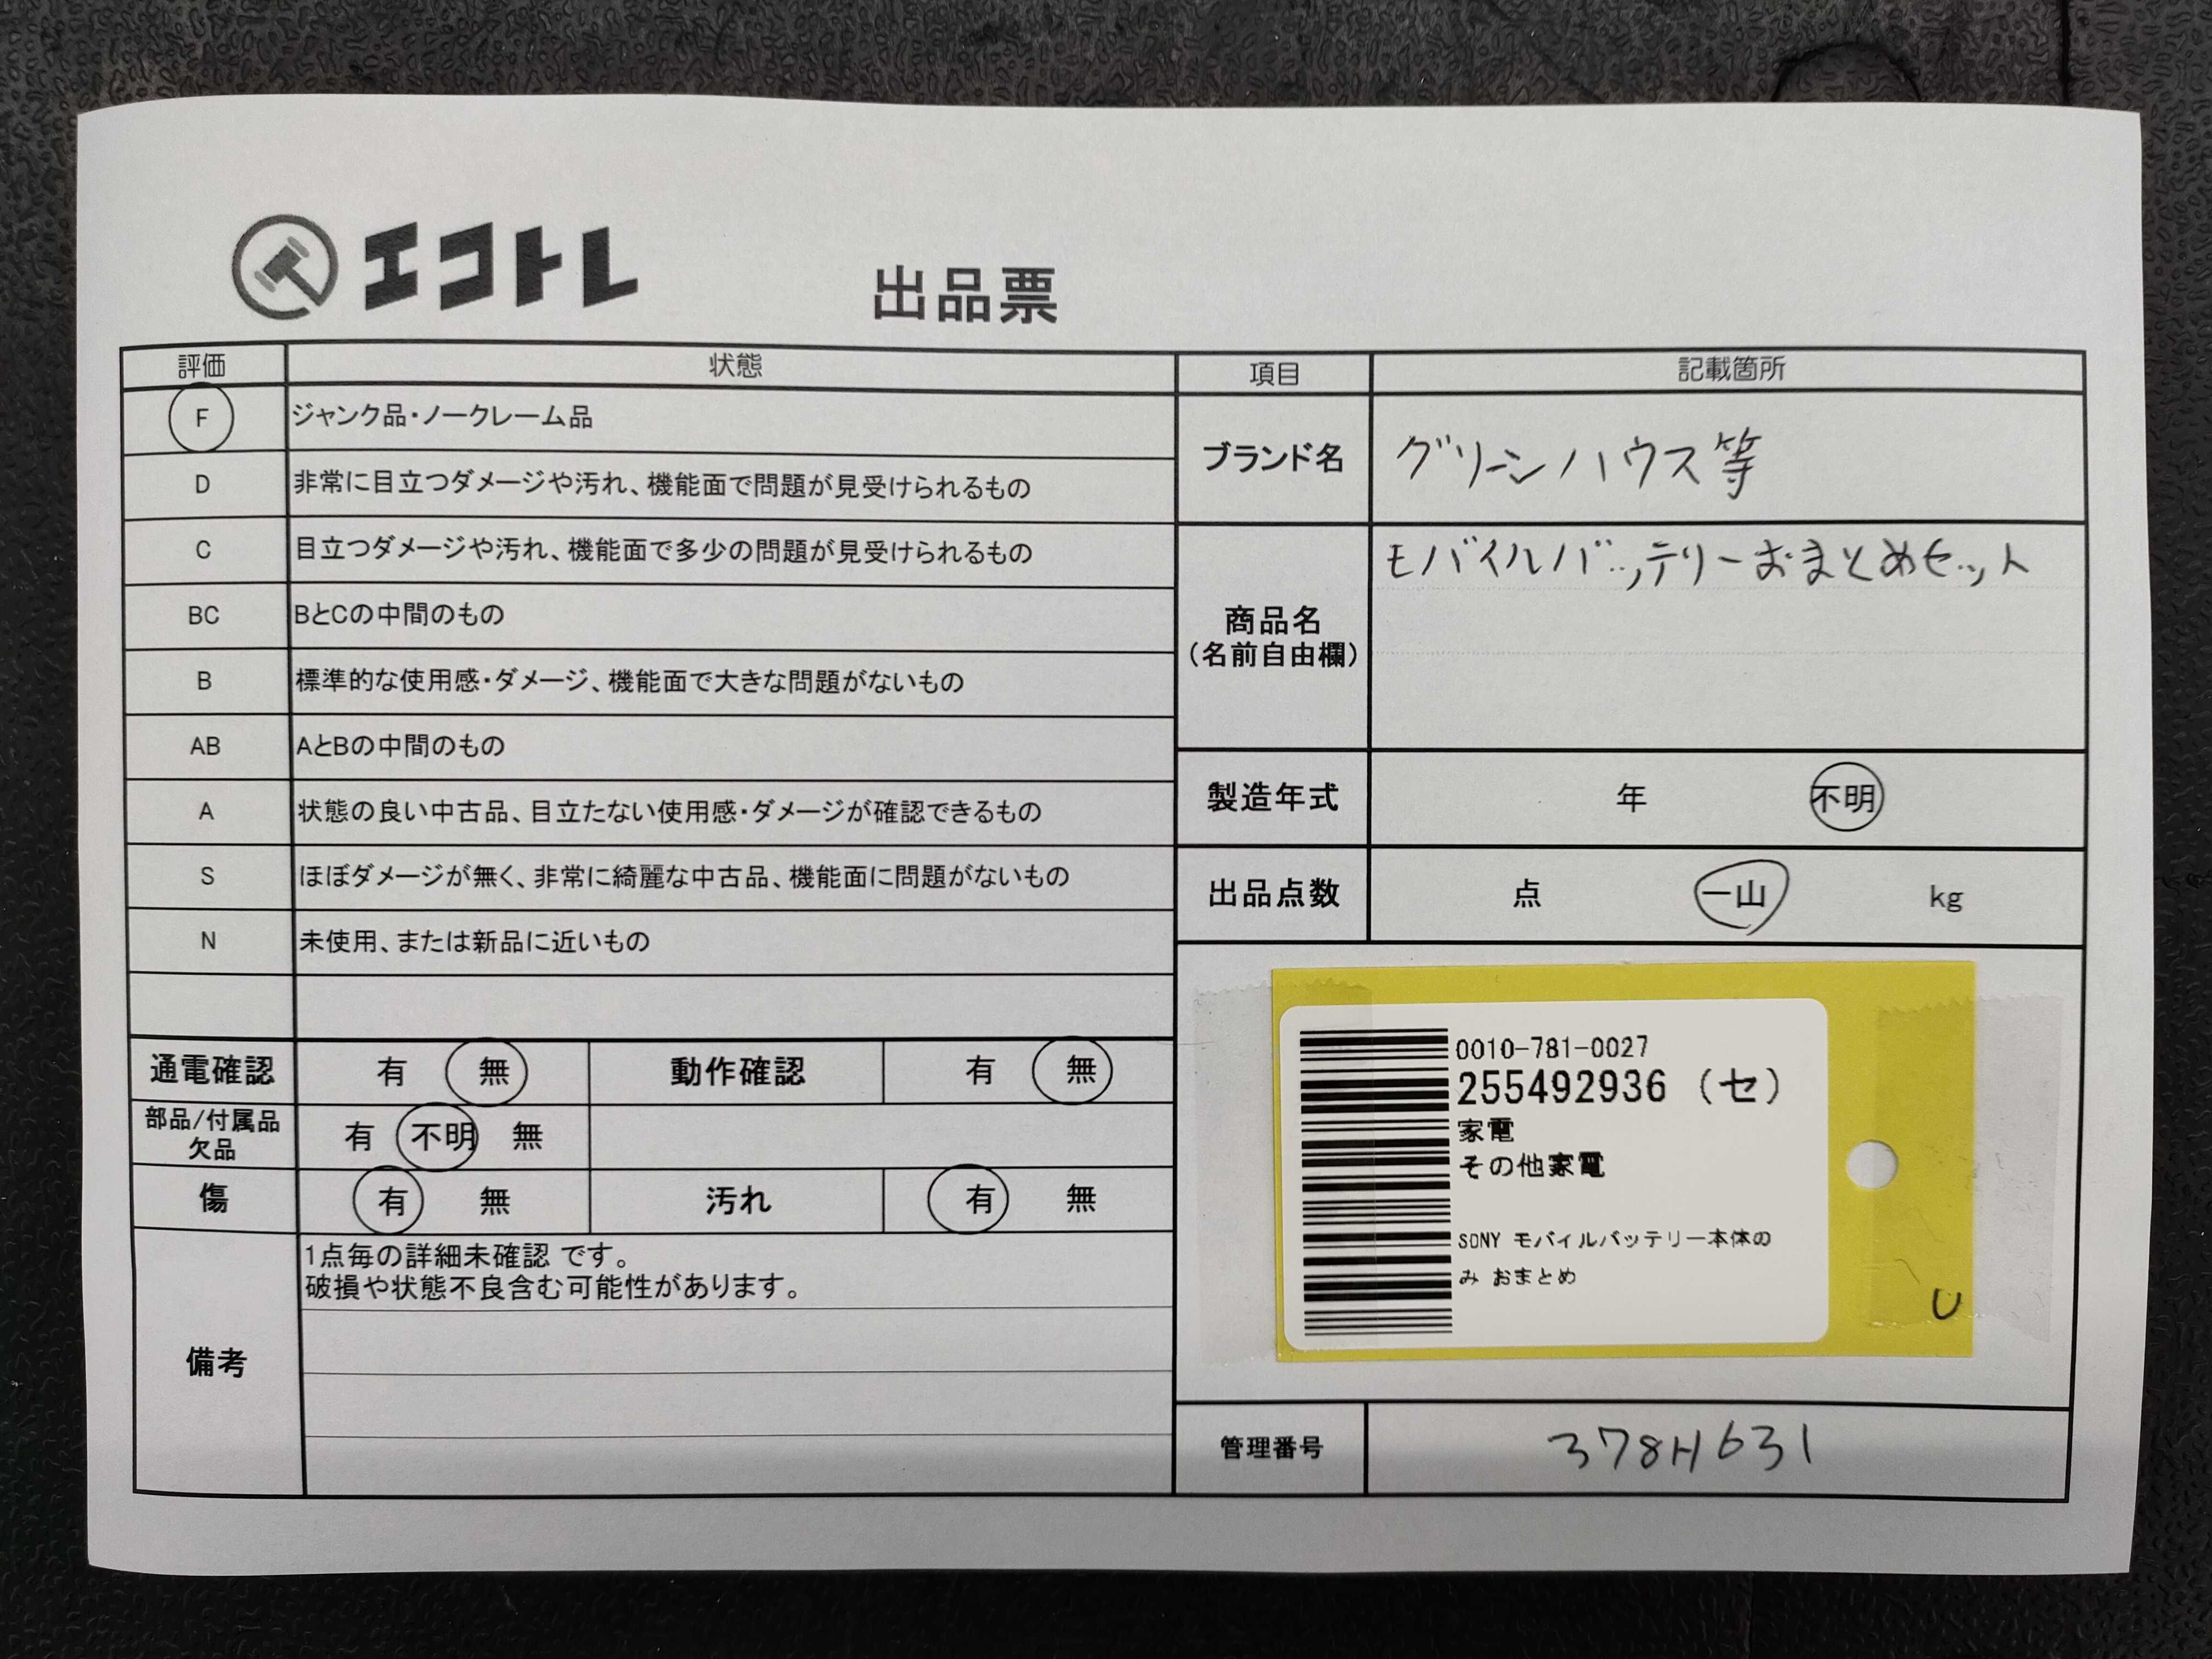 エコトレ
出品票
評価 状態
F ジャンク品・ノークレーム品
D 非常に目立つダメージや汚れ、機能面で問題が見受けられるもの
C 目立つダメージや汚れ、機能面で多少の問題が見受けられるもの
BC BとCの中間のもの
B 標準的な使用感・ダメージ、機能面で大きな問題がないもの
AB AとBの中間のもの
A 状態の良い中古品、目立たない使用感・ダメージが確認できるもの
S ほぼダメージが無く、非常に綺麗な中古品、機能面に問題がないもの
N 未使用、または新品に近いもの
通電確認 有 無 動作確認 有 無
部品/付属品
欠品
有 不明 無
傷 有 無 汚れ 有 無
備考
1点毎の詳細未確認 です。
破損や状態不良含む可能性があります。
項目 記載箇所
ブランド名 グリーンハウス等
商品名
(名前自由欄)
モバイルバッテリーおまとめセット
製造年式 年 不明
出品点数 点 一山 kg
0010-781-0027
255492936 (セ)
家電
その他家電
SONY モバイルバッテリー本体の
み おまとめ
U
管理番号 378H631